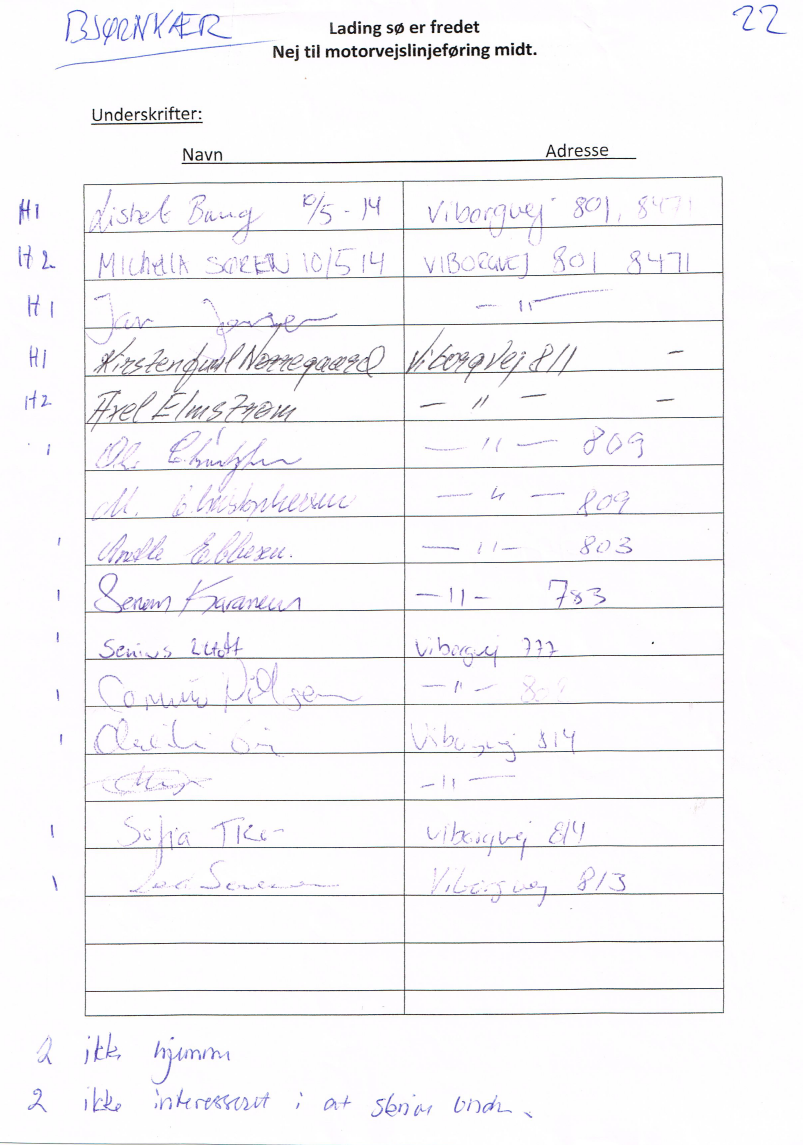 BJØRNKÆR
22
Lading sø er fredet
Nej til motorvejslinjeføring midt.
Underskrifter:
Navn Adresse
H1 Lisbet Bang 10/5 - 14 Viborgvej 801, 8471
H2 MICHELLA SØREN 10/5 14 VIBORGVEJ 801 8471
H1 Jan — 11 —
H1 Kirsten Nørregaard Viborgvej 811 —
H2 Axel Elmstrøm — 11 — —
1 — 11 — 809
M. Christophersen — 11 — 809
1 Anette Ebbesen. — 11 — 803
1 — 11 — 783
1 Viborgvej 777
1 — 11 —
1 Viborgvej 814
— 11 —
1 Sofia Viborgvej 814
1 Viborgvej 813
2 ikke hjemme
2 ikke interesseret i at skrive under.